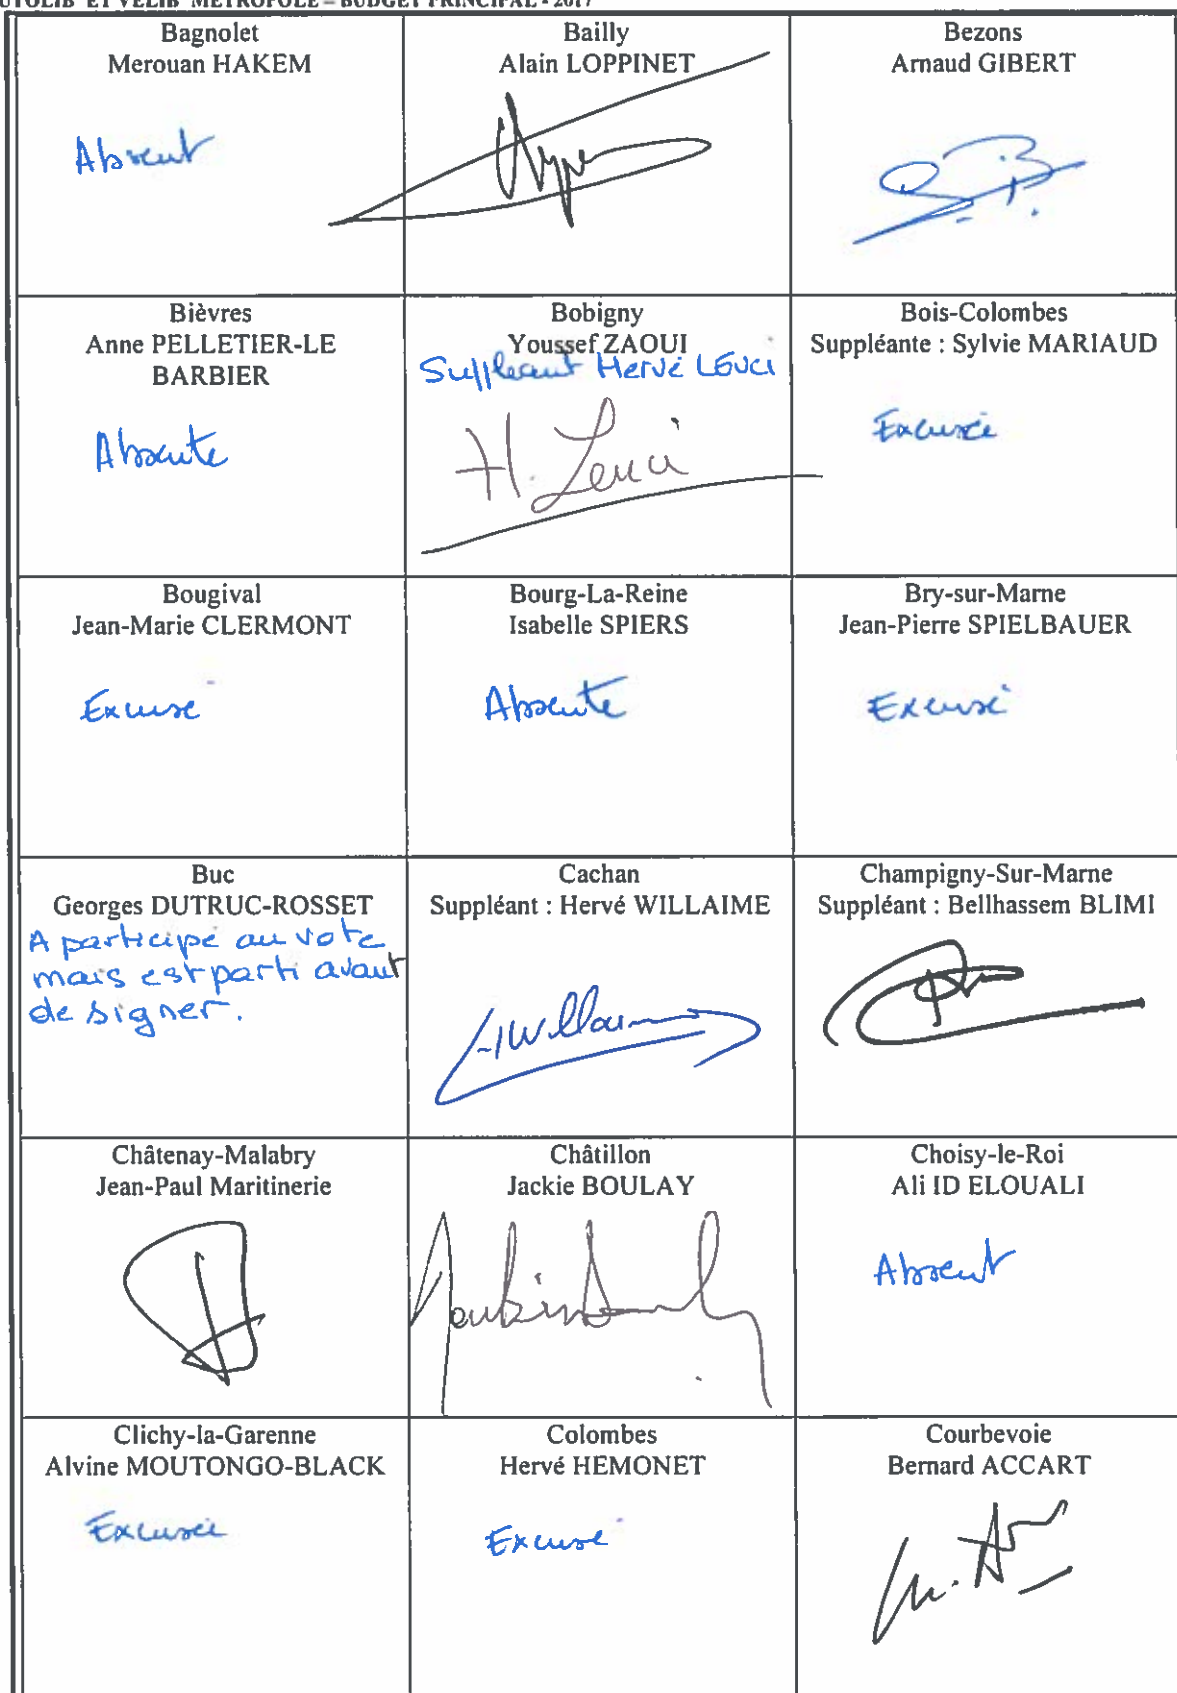 UTOLIB' ET VELIB' METROPOLE – BUDGET PRINCIPAL - 2017
Bagnolet
Merouan HAKEM
Absent
Bailly
Alain LOPPINET
Bezons
Arnaud GIBERT
Bièvres
Anne PELLETIER-LE
BARBIER
Absente
Bobigny
Youssef ZAOUI
Suppléant Hervé LEUCI
H. Leuci
Bois-Colombes
Suppléante : Sylvie MARIAUD
Excusée
Bougival
Jean-Marie CLERMONT
Excusé
Bourg-La-Reine
Isabelle SPIERS
Absente
Bry-sur-Marne
Jean-Pierre SPIELBAUER
Excusé
Buc
Georges DUTRUC-ROSSET
A participé au vote
mais est parti avant
de signer.
Cachan
Suppléant : Hervé WILLAIME
HWillaim
Champigny-Sur-Marne
Suppléant : Bellhassem BLIMI
Châtenay-Malabry
Jean-Paul Maritinerie
Châtillon
Jackie BOULAY
Choisy-le-Roi
Ali ID ELOUALI
Absent
Clichy-la-Garenne
Alvine MOUTONGO-BLACK
Excusée
Colombes
Hervé HEMONET
Excusé
Courbevoie
Bernard ACCART